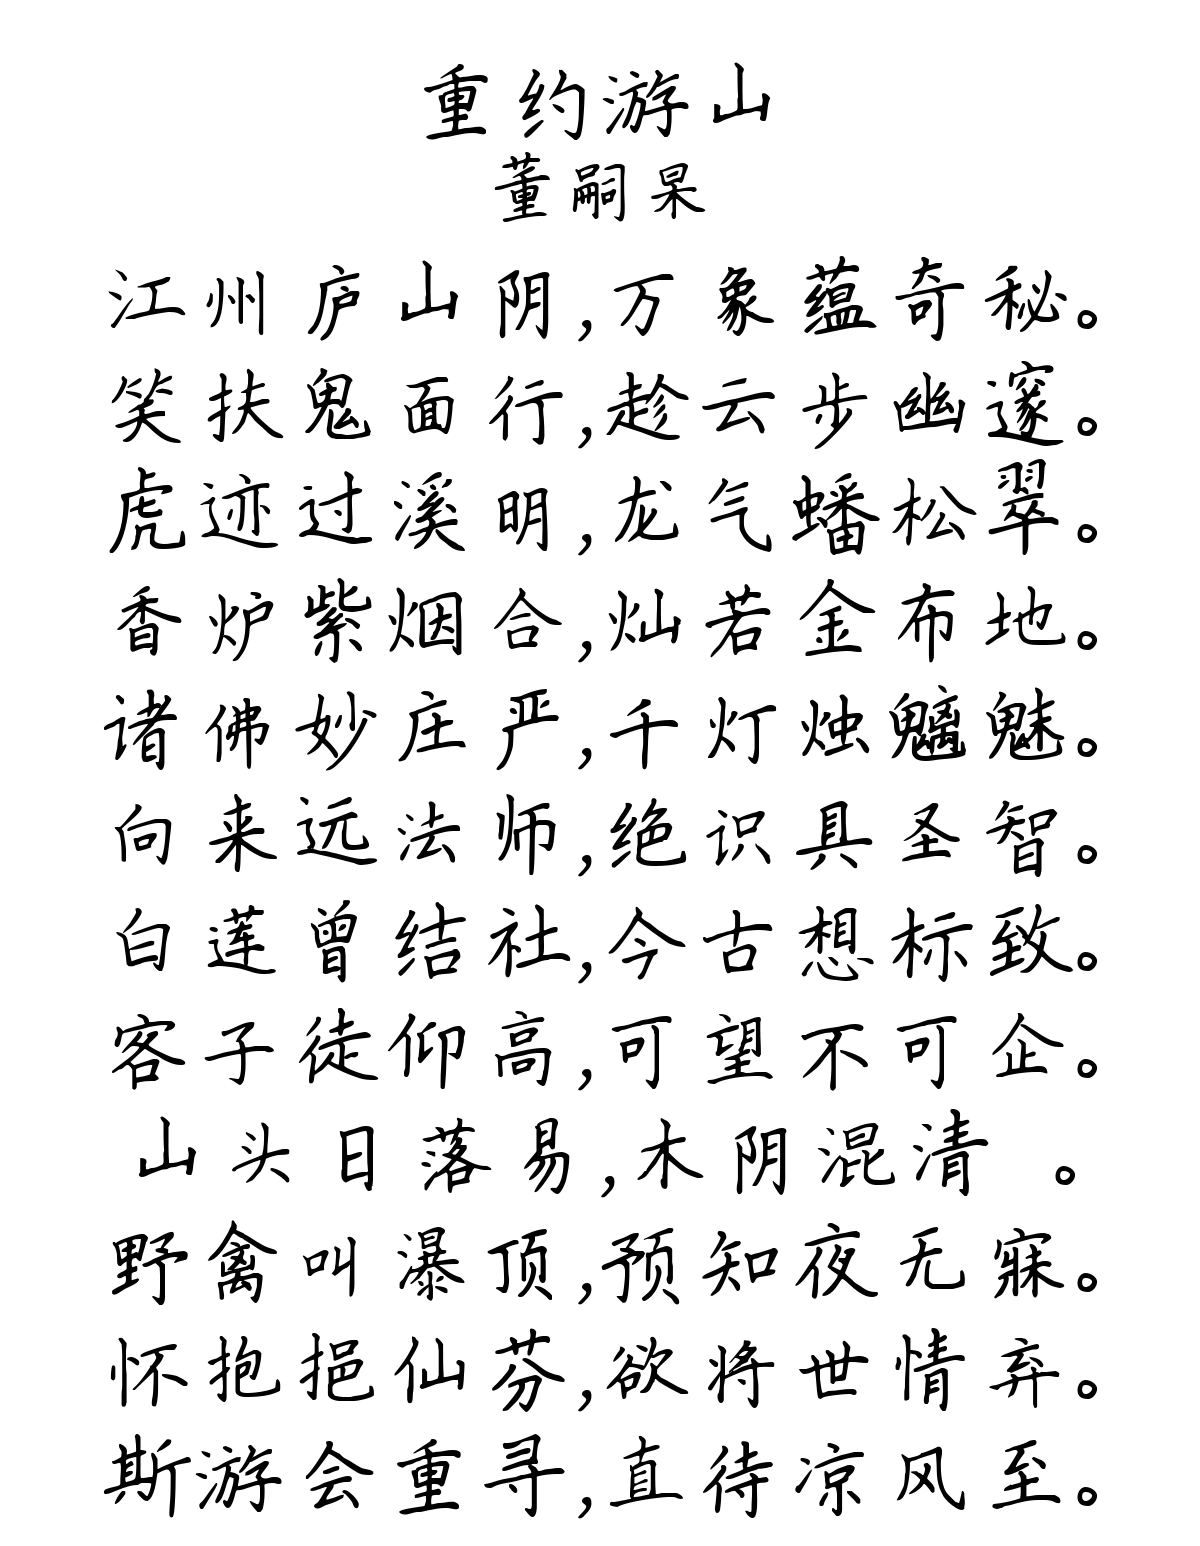 重约游山
董嗣杲
江州庐山阴,万象蕴奇秘。
笑扶鬼面行,趁云步幽邃。
虎迹过溪明,龙气蟠松翠。
香炉紫烟合,灿若金布地。
诸佛妙庄严,千灯烛魑魅。
向来远法师,绝识具圣智。
白莲曾结社,今古想标致。
客子徒仰高,可望不可企。
山头日落易,木阴混清 。
野禽叫瀑顶,预知夜无寐。
怀抱挹仙芬,欲将世情弃。
斯游会重寻,直待凉风至。